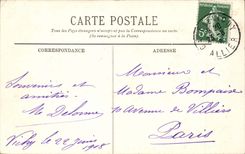 CARTE POSTALE
Tous les Pays étrangers n'acceptent pas la Correspondance au recto
(Se renseigner à la Poste)
CORRESPONDANCE
ADRESSE
ALLIER
Souvenirs et
amitiés.
M Delorme
Vichy le 22 juin
1908
Monsieur et
Madame Bompaire
10 Avenue de Villiers
Paris